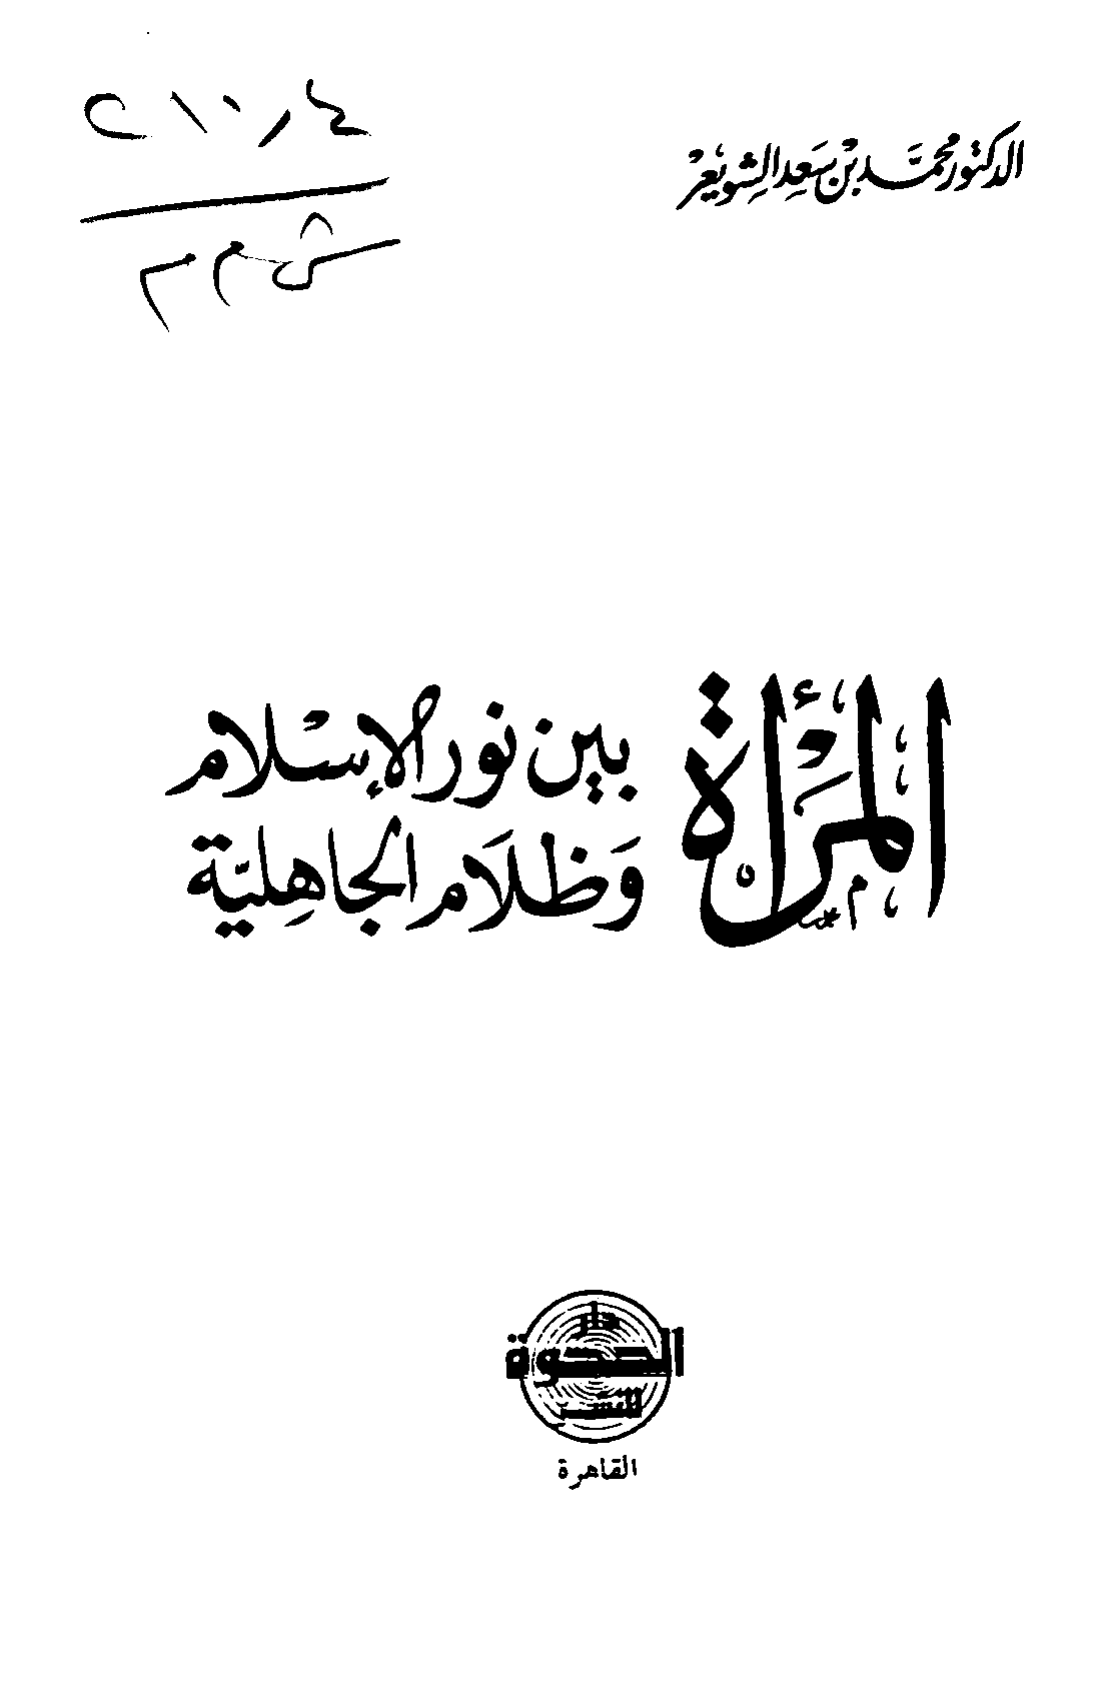 الدكتور محمد بن سعد الشويعر
المرأة
بين نور الإسلام
وظلام الجاهلية
دار
الصحوة
للنشر
القاهرة